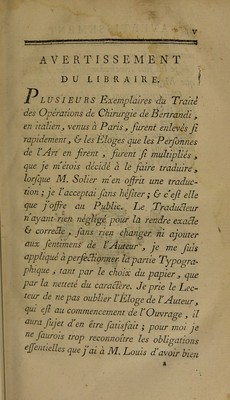 v
AVERTISSEMENT
DU LIBRAIRE.
PLUSIEURS Exemplaires du Traité
des Opérations de Chirurgie de Bertrandi,
en italien, venus à Paris, furent enlevés si
rapidement, & les Éloges que les Personnes
de l'Art en firent, furent si multipliés,
que je m'étois décidé à le faire traduire,
lorsque M. Solier m'en offrit une traduc-
tion ; je l'acceptai sans hésiter ; & c'est elle
que j'offre au Public. Le Traducteur
n'ayant rien négligé pour la rendre exacte
& correcte, sans rien changer ni ajouter
aux sentimens de l'Auteur, je me suis
appliqué à perfectionner la partie Typogra-
phique, tant par le choix du papier, que
par la netteté du caractère. Je prie le Lec-
teur de ne pas oublier l'Éloge de l'Auteur,
qui est au commencement de l'Ouvrage, il
aura sujet d'en être satisfait ; pour moi je
ne saurois trop reconnoître les obligations
essentielles que j'ai à M. Louis d'avoir bien